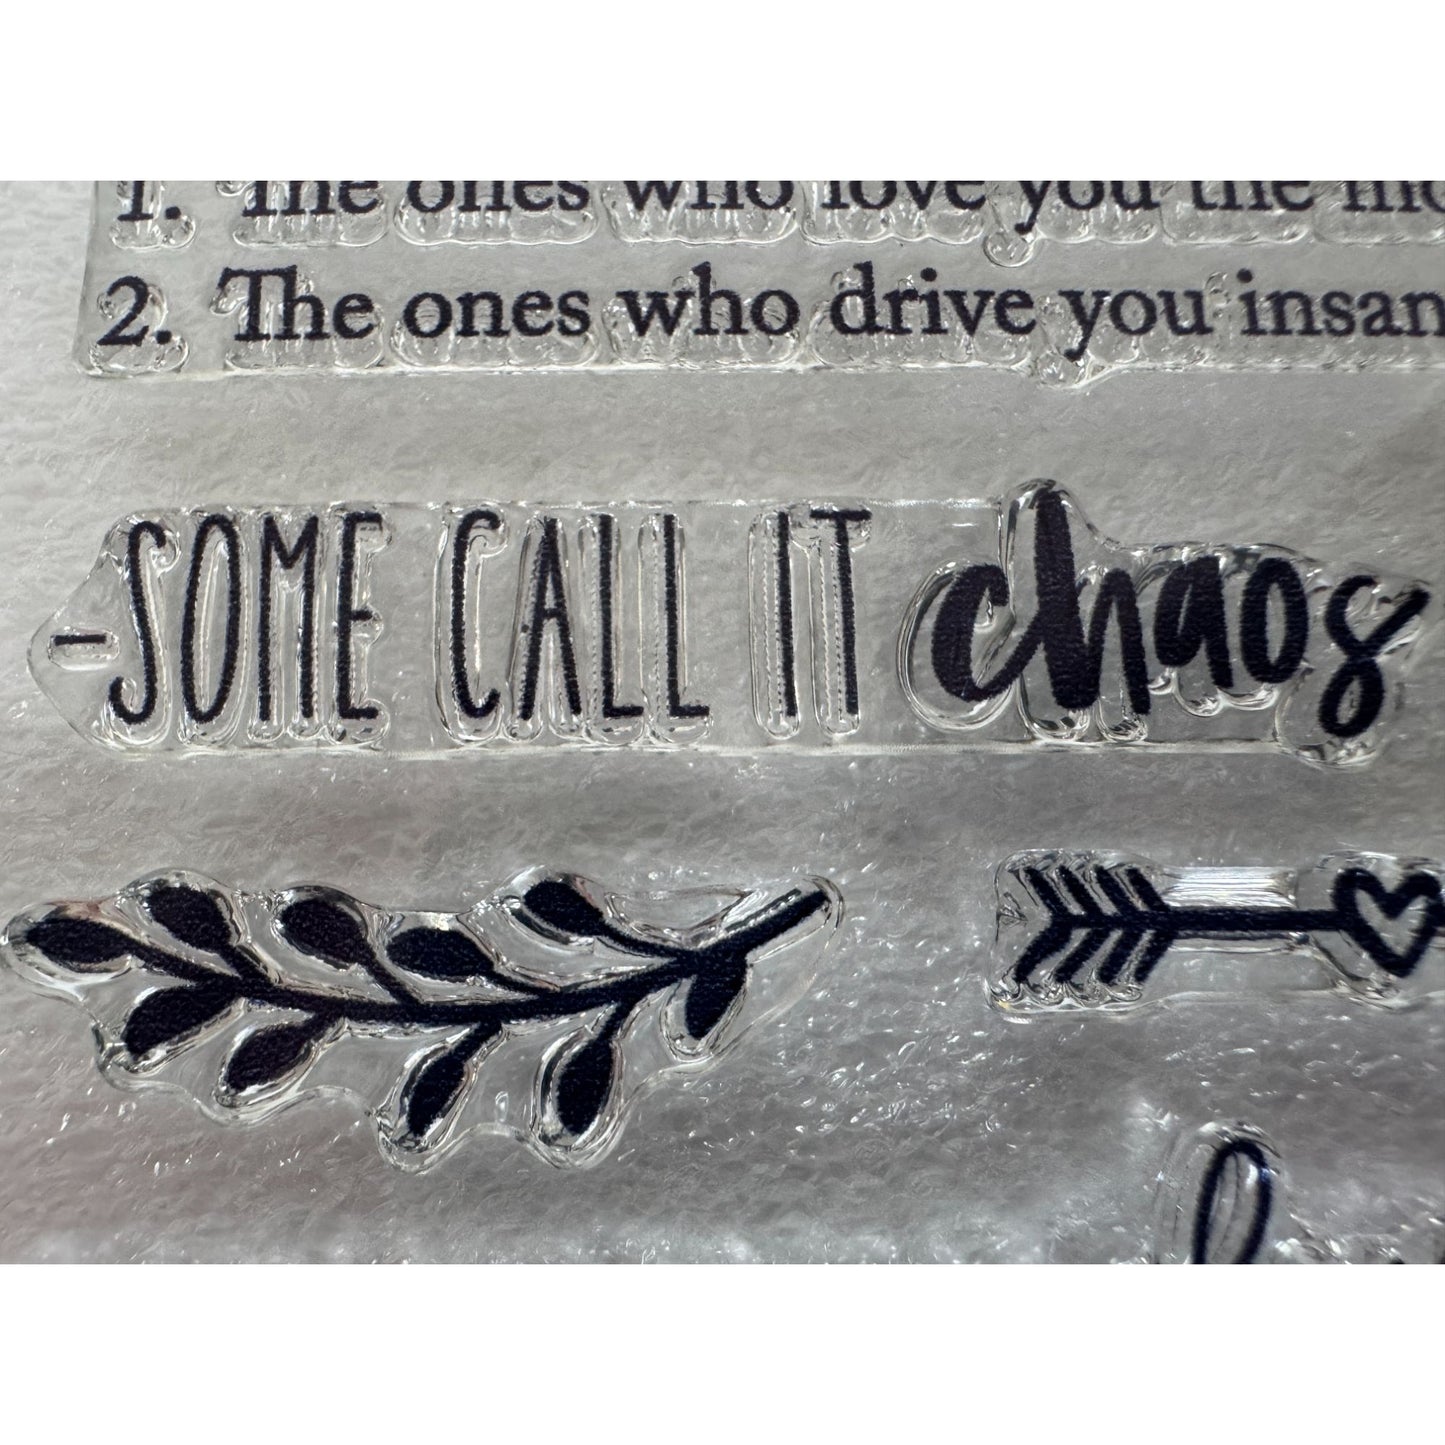 1. The ones who love you the
2. The ones who drive you
- SOME CALL IT chaos